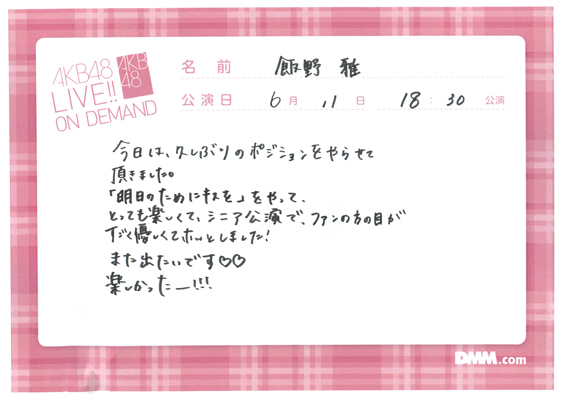 AKB48
LIVE!!
ON DEMAND
AKB
48
名前 飯野 雅
公演日 6月 11日 18:30 公演
今日は、久しぶりのポジションをやらせて
頂きました。
「明日のためにキスを」をやって、
とっても楽しくて、シニア公演で、ファンの方の目が
すごく優しくてホッとしました!
また出たいです♡♡
楽しかったー!!!
DMM.com